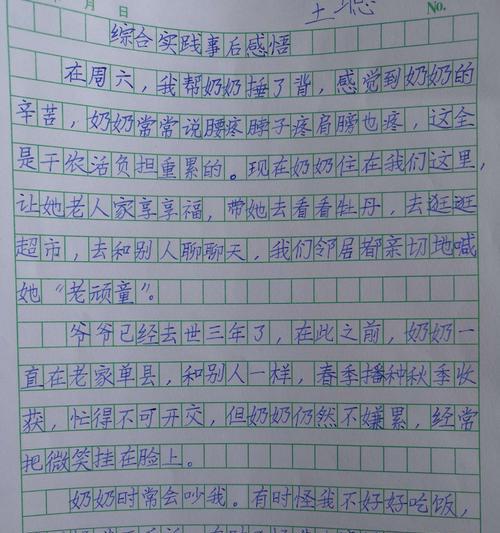 月 日 No.
综合实践事后感悟
在周六，我帮奶奶捶了背，感觉到奶奶的
辛苦，奶奶常常说腰疼脖子疼肩膀也疼，这全
是干农活负担重累的。现在奶奶住在我们这里，
让她老人家享享福，带她去看看牡丹，去逛逛
超市，去和别人聊聊天，我们邻居都亲切地喊
她“老顽童”。
爷爷已经去世三年了，在此之前，奶奶一
直在老家单县，和别人一样，春季播种秋季收
获，忙得不可开交，但奶奶仍然不嫌累，经常
把微笑挂在脸上。
奶奶时常会吵我。有时怪我不好好吃饭，